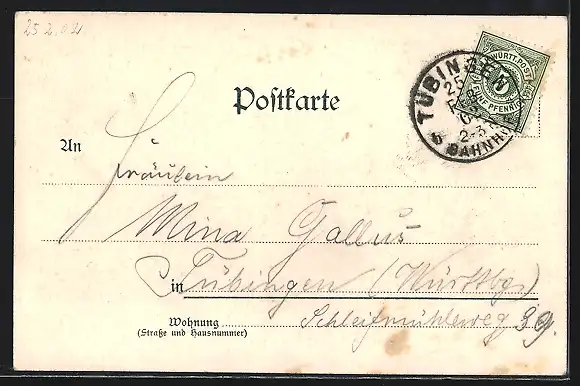 25 2.03
K. WÜRTT. POST
5
FÜNF PFENNIG
TÜBINGEN
25
FEB
03
2-3
BAHNHOF
Postkarte
An
Fräulein
Mina Gallus
in Tübingen (Württbg.)
Wohnung
(Straße und Hausnummer)
Schleifmühleweg 39.